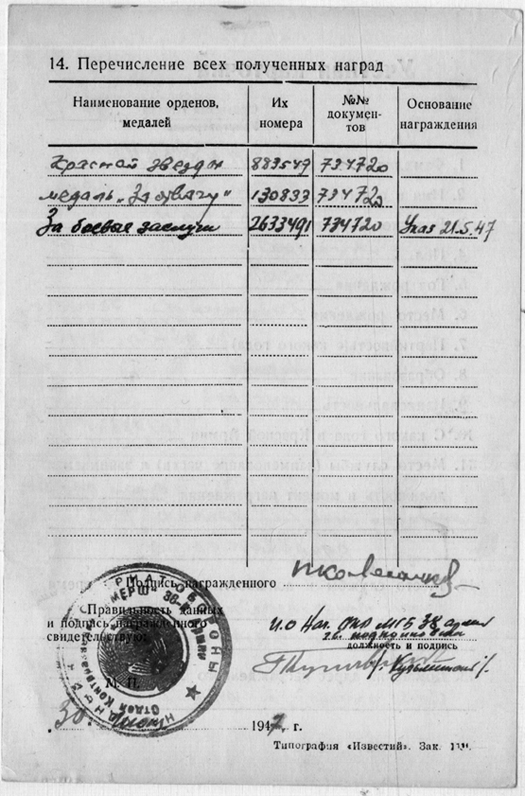 14. Перечисление всех полученных наград
Наименование орденов, медалей
Их номера
№№ докумен-тов
Основание награждения
Красной звезды 883547 734720
медаль „За отвагу" 130833 734720
За боевые заслуги 2633491 734720 Указ 21.5.47
Подпись награжденного
Правильность данных
и подпись награжденного
свидетельствую:
И.О Нач. ОКР МГБ 38 армии
должность и подпись
М. П.
30 1947 г.
Типография «Известий». Зак.